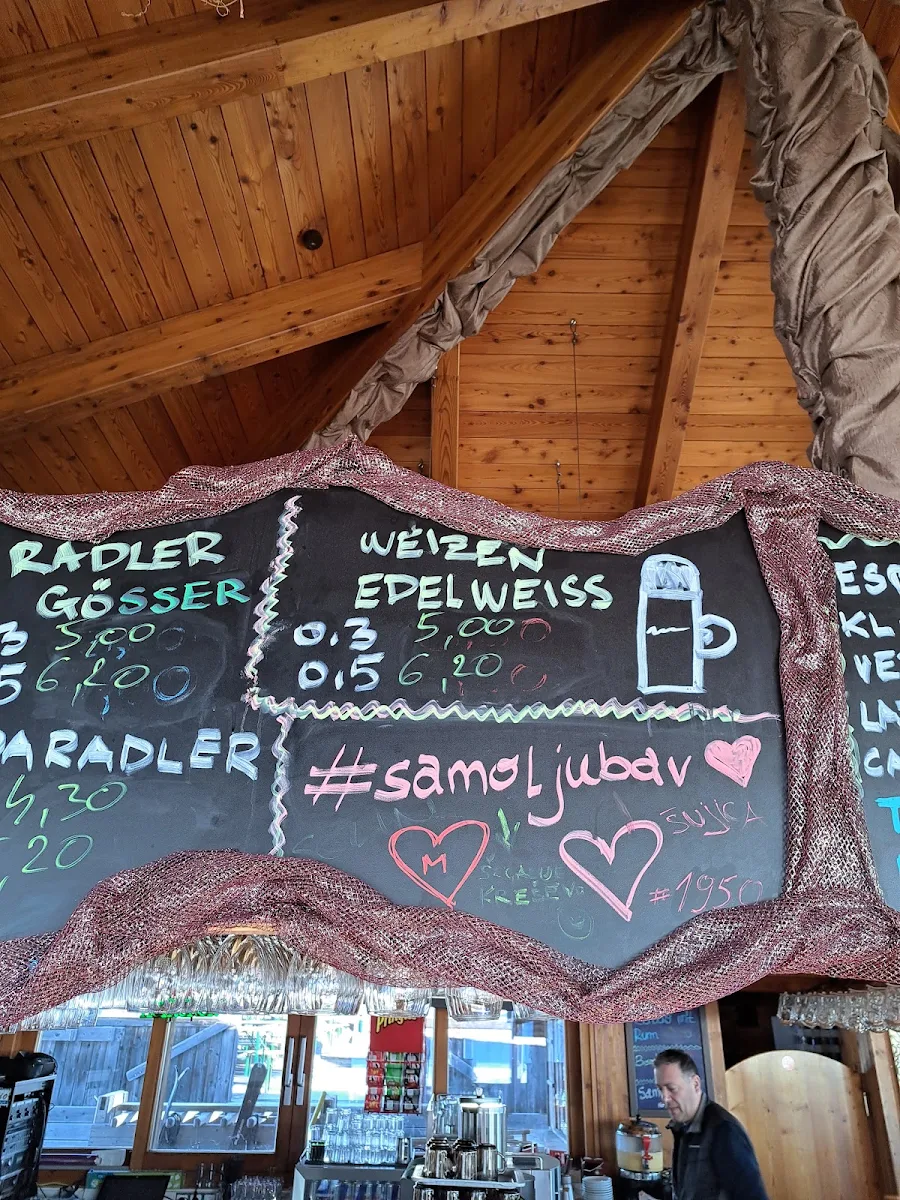 RADLER
GÖSSER
3 5,00
5 6,20
PARADLER
4,30
,20
WEIZEN
EDELWEISS
0.3 5,00
0.5 6,20
#samoljubav
M
ŠUJICA
KREŠEVO
#1950
ESP
KL
VE
LA
CA
T
Rum